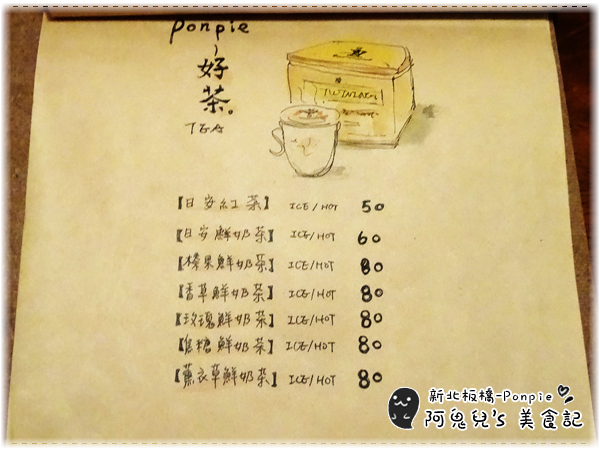 Ponpie
~好茶。
TEA
【日安紅茶】 ICE/HOT 50
【日安鮮奶茶】 ICE/HOT 60
【榛果鮮奶茶】 ICE/HOT 80
【香草鮮奶茶】 ICE/HOT 80
【玫瑰鮮奶茶】 ICE/HOT 80
【焦糖鮮奶茶】 ICE/HOT 80
【薰衣草鮮奶茶】 ICE/HOT 80
新北板橋-Ponpie
阿鬼兒's 美食記